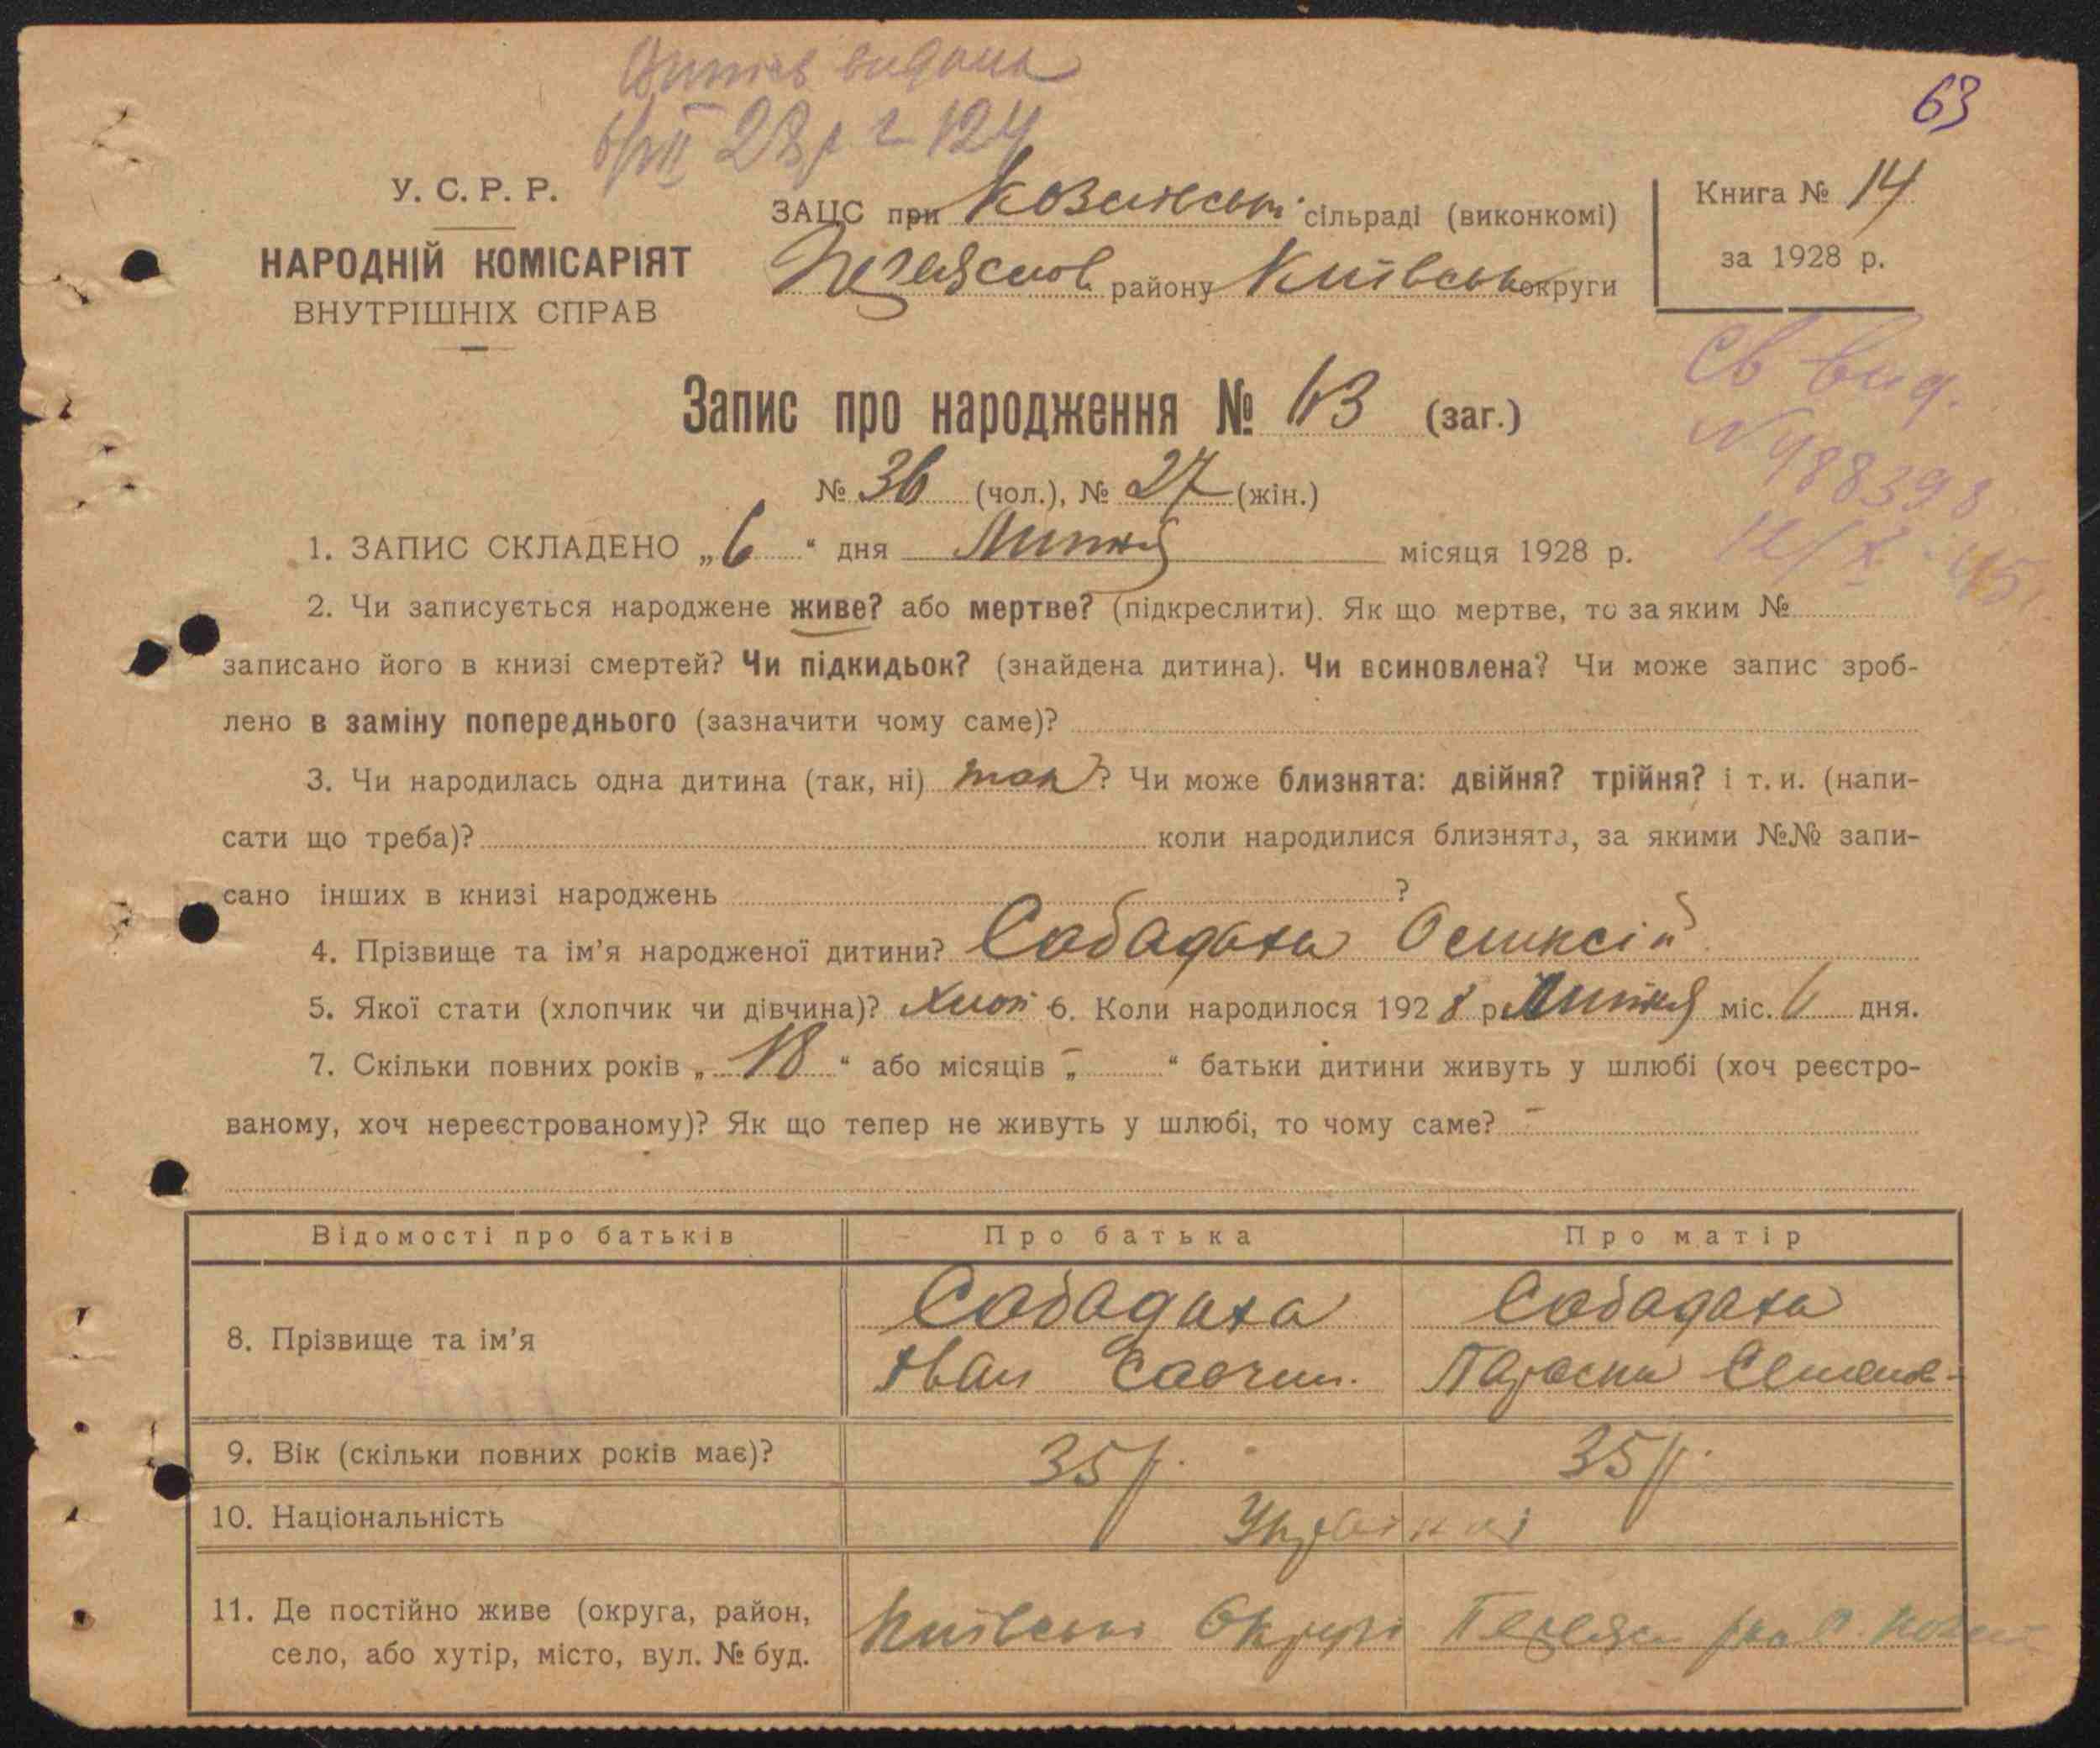 Витяг видана
63
6/VII 28 р. 124
У. С. Р. Р.
НАРОДНІЙ КОМІСАРІЯТ
ВНУТРІШНІХ СПРАВ
ЗАЦС при Козинськ. сільраді (виконкомі)
Переяслов. району Київськ округи
Книга № 14
за 1928 р.
Св вид.
N 488398
12/X-45
Запис про народження № 63 (заг.)
№ 36 (чол.), № 27 (жін.)
1. ЗАПИС СКЛАДЕНО „6“ дня Липня місяця 1928 р.
2. Чи записується народжене живе? або мертве? (підкреслити). Як що мертве, то за яким №
записано його в книзі смертей? Чи підкидьок? (знайдена дитина). Чи всиновлена? Чи може запис зроб-
лено в заміну попереднього (зазначити чому саме)?
3. Чи народилась одна дитина (так, ні) так? Чи може близнята: двійня? трійня? і т. и. (напи-
сати що треба)? коли народилися близнята, за якими №№ запи-
сано інших в книзі народжень ?
4. Прізвище та ім’я народженої дитини? Сабадаха Олексій
5. Якої стати (хлопчик чи дівчина)? хлоп 6. Коли народилося 1928 р. Липня міс. 6 дня.
7. Скільки повних років „18“ або місяців „-“ батьки дитини живуть у шлюбі (хоч реєстро-
ваному, хоч нереєстрованому)? Як що тепер не живуть у шлюбі, то чому саме? -
Відомості про батьків Про батька Про матір
8. Прізвище та ім’я
Сабадаха Сабадаха
Іван Параска Семенов-
9. Вік (скільки повних років має)? 35 р. 35 р.
10. Національність Українці
11. Де постійно живе (округа, район,
село, або хутір, місто, вул. № буд.
Київськ Округи Переясл. р-на с. Козин